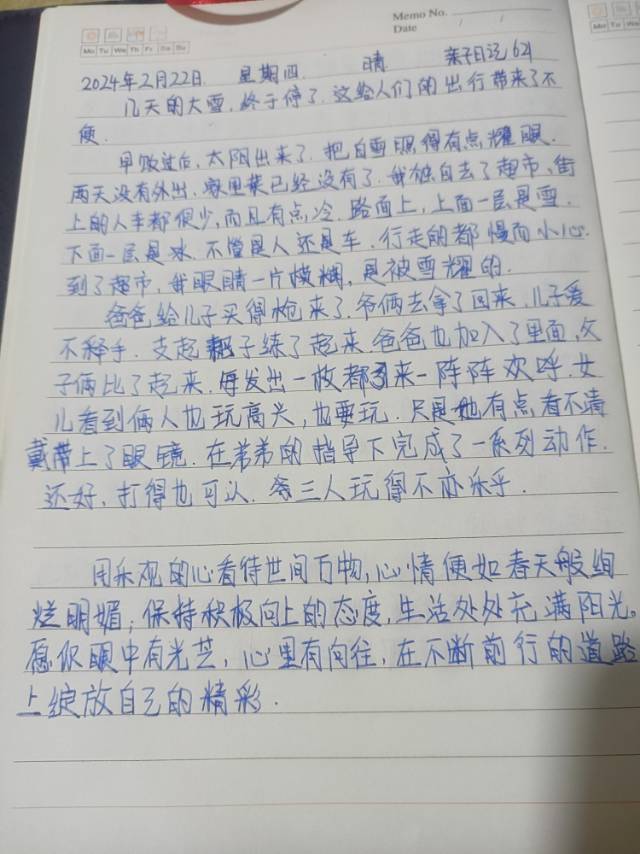 Memo No.
Date / /
Mo Tu We Th Fr Sa Su
2024年2月22日. 星期四. 晴 亲子日记 621
几天的大雪.终于停了.这给人们的出行带来了不
便.
早饭过后.太阳出来了.把白雪照得有点耀眼.
两天没有外出.家里菜已经没有了.我独自去了超市.街
上的人车都很少,而且有点冷.路面上,上面一层是雪.
下面一层是冰.不管是人还是车.行走的都慢而小心.
到了超市,我眼睛一片模糊,是被雪耀的.
爸爸给儿子买得枪来了.爷俩去拿了回来.儿子爱
不释手.支起靶子练了起来.爸爸也加入了里面,父
子俩比了起来.每发出一枚都引来一阵阵欢呼.女
儿看到俩人也玩高兴,也要玩.只是她有点看不清
戴带上了眼镜.在弟弟的指导下完成了一系列动作.
还好,打得也可认.爷三人玩得不亦乐乎.
用乐观的心看待世间万物,心情便如春天般绚
烂明媚;保持积极向上的态度,生活处处充满阳光。
愿你眼中有光芒,心里有向往,在不断前行的道路
上绽放自己的精彩.